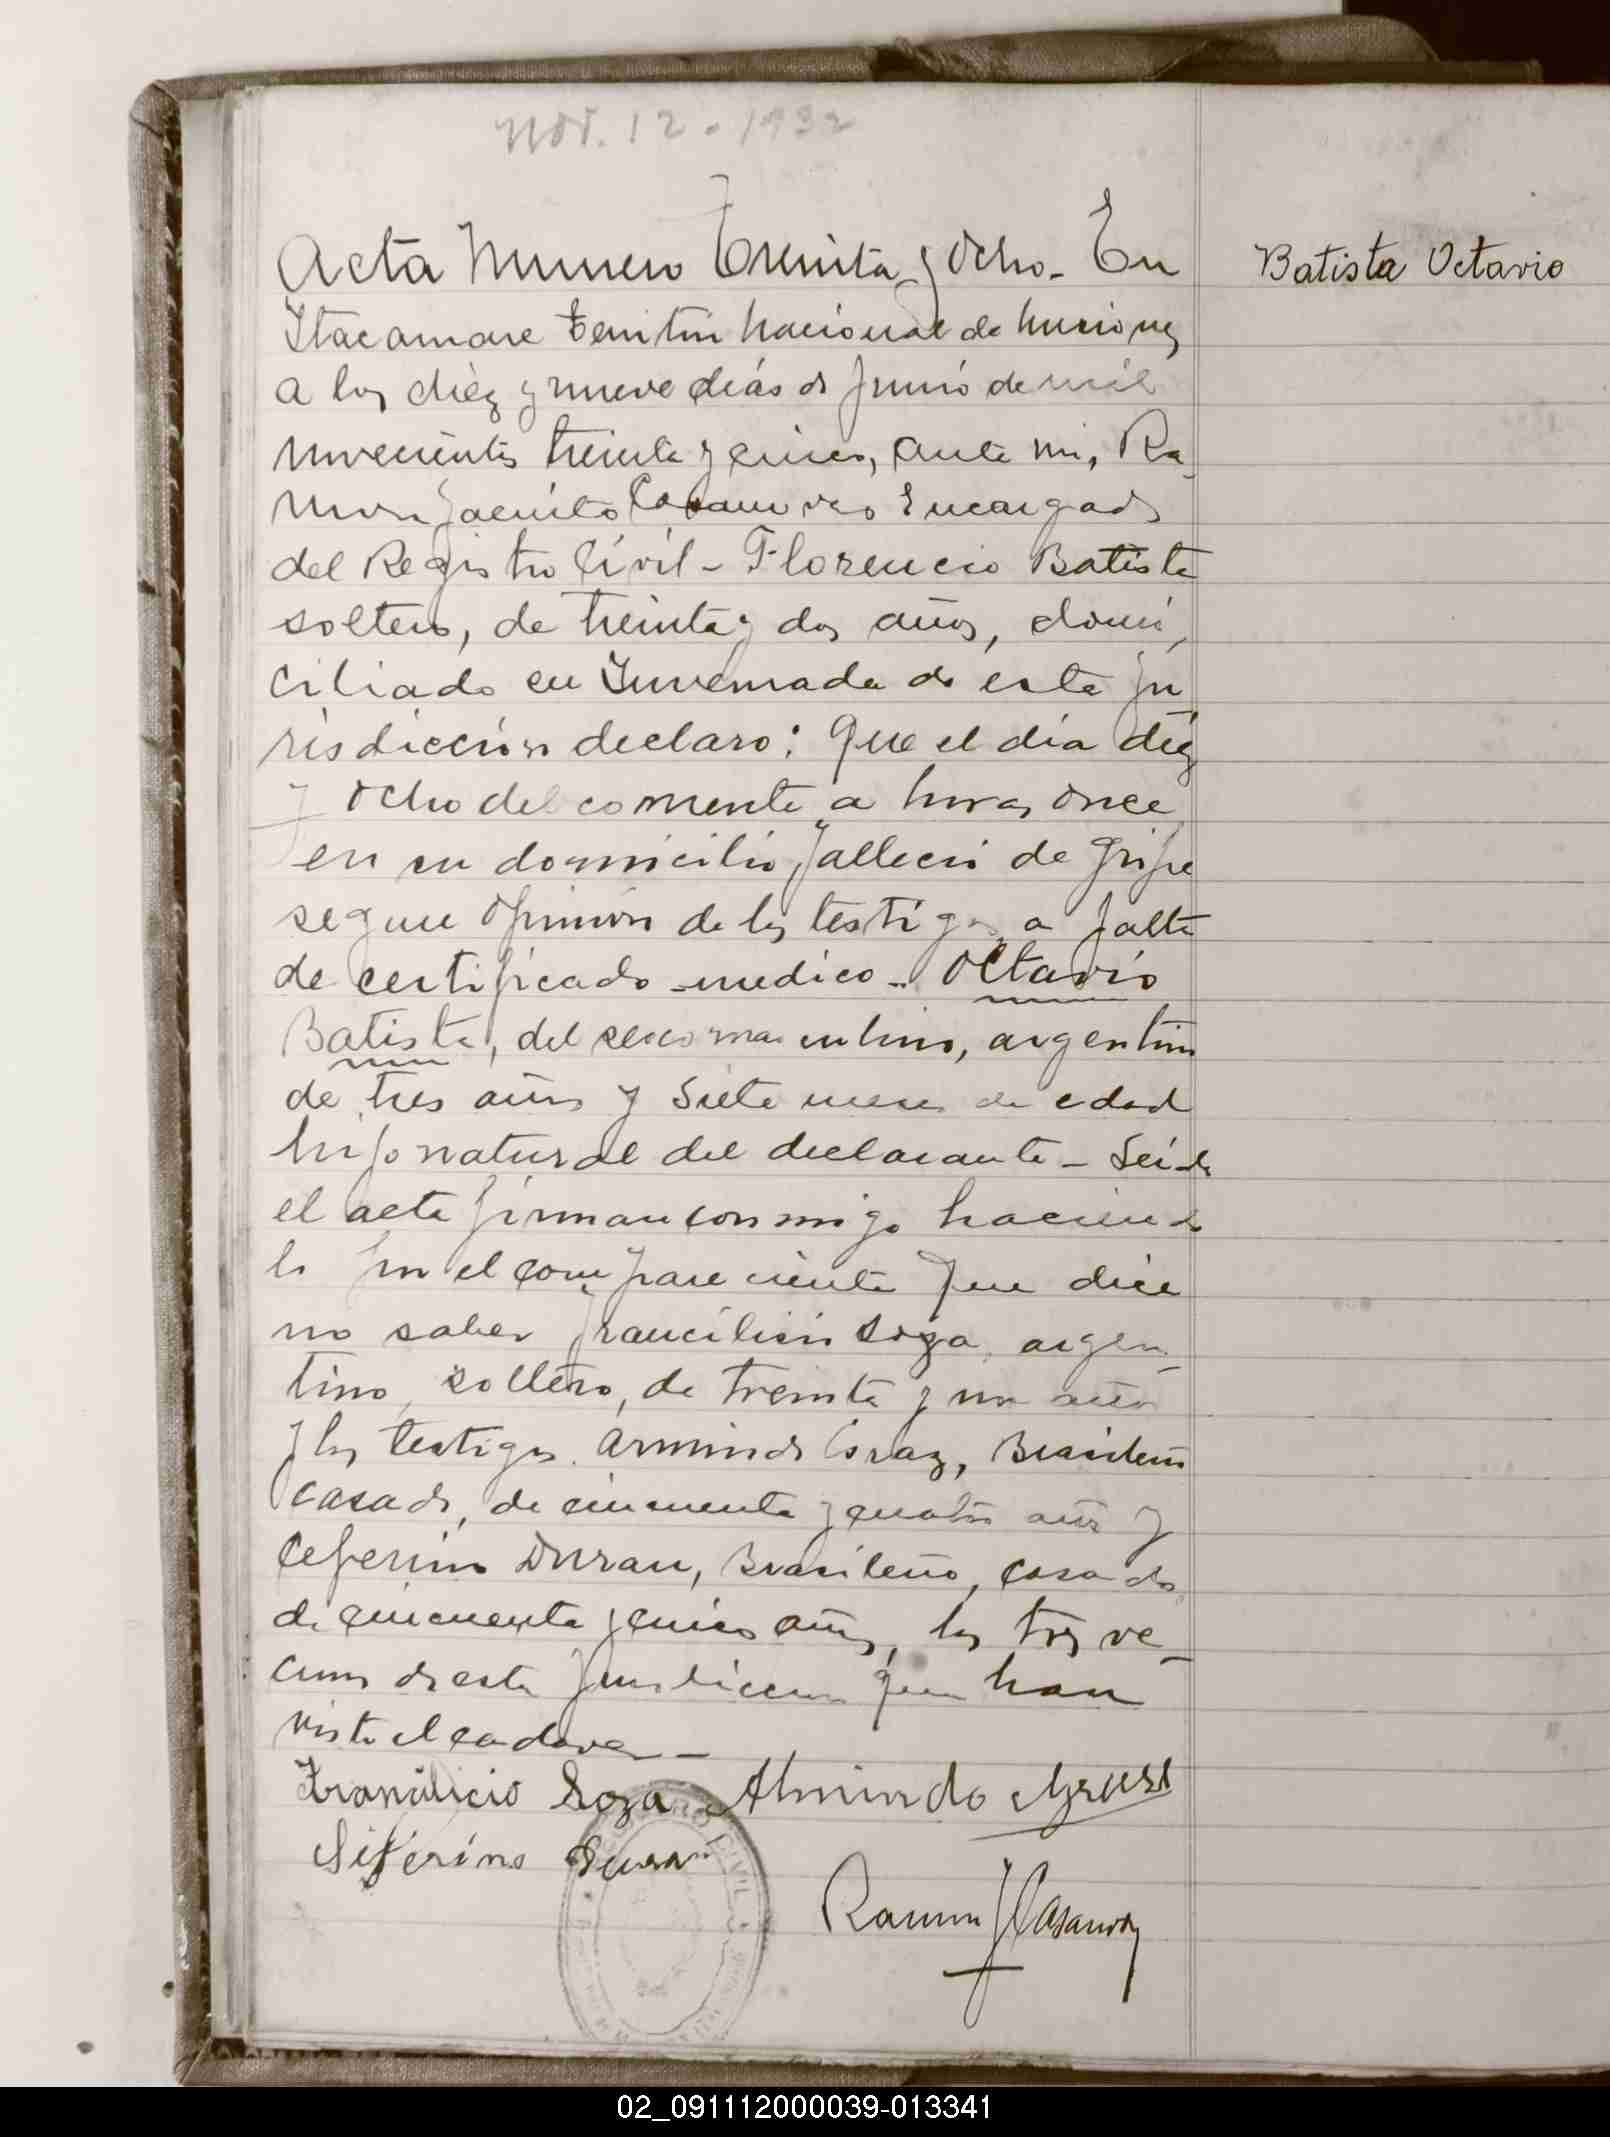 Nov. 12 - 1932
Acta Numero Treinta y Ocho - En
Itacaruare Territorio Nacional de Misiones
a los diez y nueve dias de Junio de mil
novecientos treinta y cinco, ante mi, Ra-
mon Jacinto Casanova Encargado
del Registro Civil - Florencio Batista
soltero, de treinta y dos años, domi
ciliado en Invernada de esta ju
risdiccion declaro: Que el dia diez
y ocho del corriente a horas once
en su domicilio fallecio de gripe
segun opinion de los testigos a falta
de certificado medico - Octavio
Batista, del sexo masculino, argentino
de tres años y siete meses de edad
hijo natural del declarante - Leida
el acta firman conmigo haciendo
lo por el compareciente que dice
no saber Soza, argen-
tino, soltero, de treinta y un años
y los testigos Armindo, Brasileño
casado, de cincuenta y cuatro años y
Ceferino Duran, Brasileño, casado
de cincuenta y cinco años, los tres ve-
cinos de esta jurisdiccion que han
visto el cadaver -
Soza Almindo
Siferino Duran
Ramon J Casanova
Batista Octavio
REGISTRO CIVIL
02_091112000039-013341